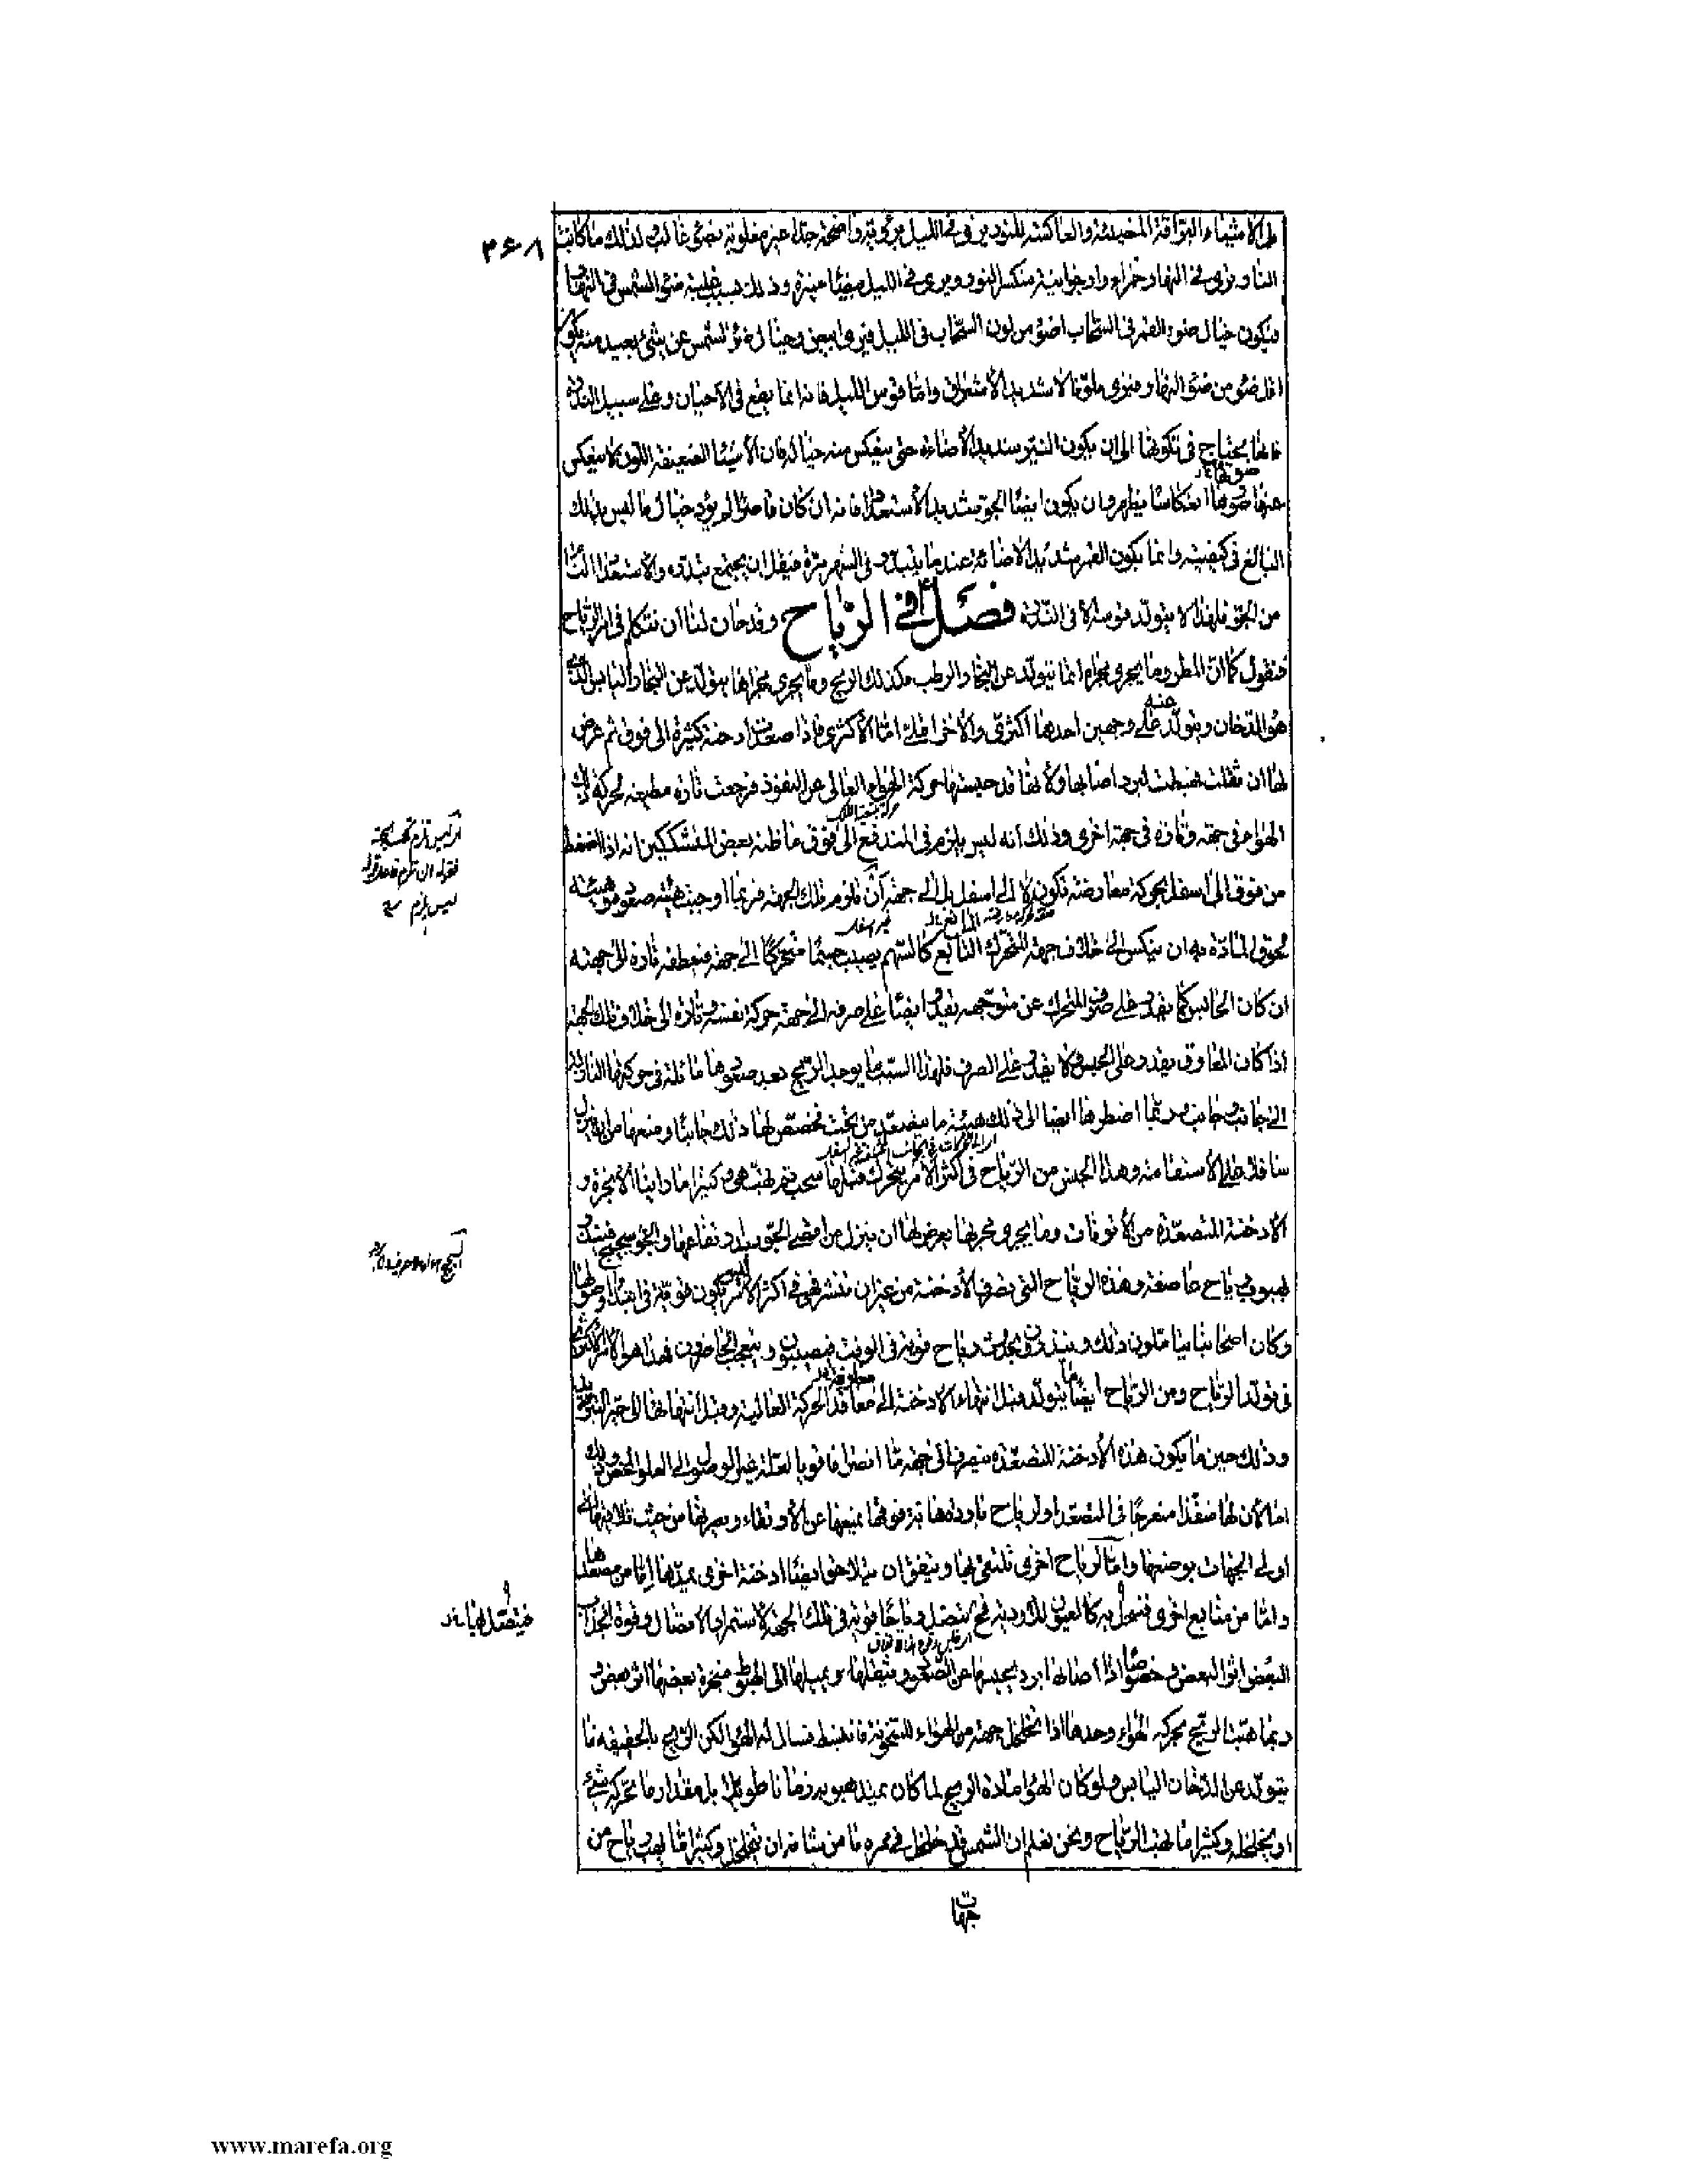 ٣٤٨
الاشياء البراقة المضيئة والعاكسة للنور يرى فى الليل مرئية واضحة جدا غير مغلوبة بضوء غالب ولذلك ما كانت
النار يرى فى النهار حمراء وارجوانية منكسر النور ويرى فى الليل مضيئا منيرة وذلك بسبب غلبة ضوء الشمس فى النهار
فيكون خيال ضوء القمر فى السحاب اضوء من لون السحاب فى الليل فيرى ابيض وخيال ضوء الشمس عن شئ بعيد منه يكون
اقل ضوء من ضوء النهار فيرى ملونا لا شديد الاشراق واما قوس الليل فانه انما يقع فى الاحيان وعلى سبيل الندرة
فانها يحتاج فى تكونها الى ان يكون النير شديد الاضاءة حتى ينعكس منه خيال فان الاشياء الضعيفة اللون لا ينعكس
عنها ضوءها انعكاسا يظهر وان يكون ايضا الجو شديد الاستعداد فانه ان كان قاصرا لم يؤد خيال ما ليس بذلك
البالغ فى كيفيته وانما يكون القمر شديد الاضاءة عندما يتبدر فى الشهر مرة فيقل ان يجتمع تبدره والاستعداد التام
من الجو فلهذا لا يتولد قوسه الا فى الندرة فصل فى الرياح وقد حان لنا ان نتكلم فى امر الرياح
فنقول كما ان المطر وما يجرى مجراه انما يتولد عن البخار الرطب فكذلك الريح وما يجرى مجراها يتولد عن البخار اليابس الذى
هو الدخان ويتولد عنه على وجهين احدهما اكثرى والاخر اقلى اما الاكثرى فاذا صعدت ادخنة كثيرة الى فوق ثم عرض
لها ان ثقلت فهبطت لبرد اصابها ولانها قد حبستها حركة الهواء العالى عن النفوذ فرجعت تارة مطيعة لحركة ذلك
الهواء فى جهة وتارة فى جهة اخرى وذلك انه ليس يلزم فى المندفع الى فوق ما ظنه بعض المتشككين انه اذا انضغط
من فوق الى اسفل بحركة معارضة تكون لا الى اسفل بل الى جهة ان تلزم تلك الجهة فربما اوجبت هيئة صعوده وهيئة
لحوق المادة به ان ينكس الى خلاف جهة المتحرك المانع كالسهم يصيب جسما متحركا الى جهة فيعطفه تارة الى جهته
ان كان الحابس كما يقدر على صرف المتحرك عن متوجهه يقدر ايضا على صرفه الى جهة حركة نفسه وتارة الى خلاف تلك الجهة
اذا كان المعاوق يقدر على الحبس ولا يقدر على الصرف فلهذا السبب ما يوجد الريح بعد صعودها مائلة فى حركتها النازلة
الى جانب وجانب وربما اضطرها ايضا الى ذلك هيئة ما يتصعد من تحت مخصص لها ذلك جانبا ومنعها من ان ينزل
نافذا على الاستقامة وهذا الجنس من الرياح فى اكثر الامر يتحرك قبلها سحب ثم تهب هى وكثيرا ما راينا الابخرة و
الادخنة المتصعدة من الاتونات وما يجرى مجريها يعرض لها ان ينزل من اقصى الجو بارتفاعها والجو سجسج فيبتدى
هبوب رياح عاصفة وهذه الرياح التى يصرفها الادخنة من غير ان تنتشر فهى فى اكثر الامر يكون قوية فى ابتداء وصولها
وكان اصحابنا يتاملون ذلك وينذرون بحدوث رياح قوية فى الوقت فيصيبون ويتعجب الحاضرون فهذا هو الامر الاكثرى
فى تولد الرياح ومن الرياح ايضا ما يتولد قبل انتهاء الادخنة الى الحركة العالية وقبل انتهائها الى حيز التبريد
وذلك حين ما يكون هذه الادخنة المتصعدة ينصرف الى جهة ما انصرافا قويا لعلة غير الوصول الى العلو المحض وذلك
اما لان لها منفذا منعرجا فى المتصعد او لرياح باردة هابة فوقها يمنعها عن الارتقاء ويصرفها من حيث تلاقيها الى
اولى الجهات بوضعها واما لرياح اخرى تلتقى بها ويتفق ان يتلاحق ايضا ادخنة اخرى يمدها اما من مصعدها
واما من منابع اخرى فيسيل به كالعيون للاودية فح يتصل رياحا قوية فى تلك الجهة لاستمرار الاتصال وقوة انجذاب
البعض اثر البعض وخصوصا اذا اصابها برد يحبسها عن الصعود ويثقلها ويميلها الى الهبوط منجرة بعضها اثر بعض و
ربما هبت الريح لحركة الهواء وحدها اذا تخلخل جهة من الهواء للسخونة فانبسط فسال له الهواء لكن الريح بالحقيقة ما
يتولد عن الدخان اليابس ولو كان الهواء مادة الريح لما كان يمتد هبوبه زمانا طويلا بل مقدار ما يحركه شئ
او يخلخله وكثيرا ما يهب الرياح ونحن نعلم ان الشمس قد خلخل فى ممره ما من شانه ان يتخلخل وكثيرا ما يهب رياح من
جهات
فيتصل لها
www.marefa.org